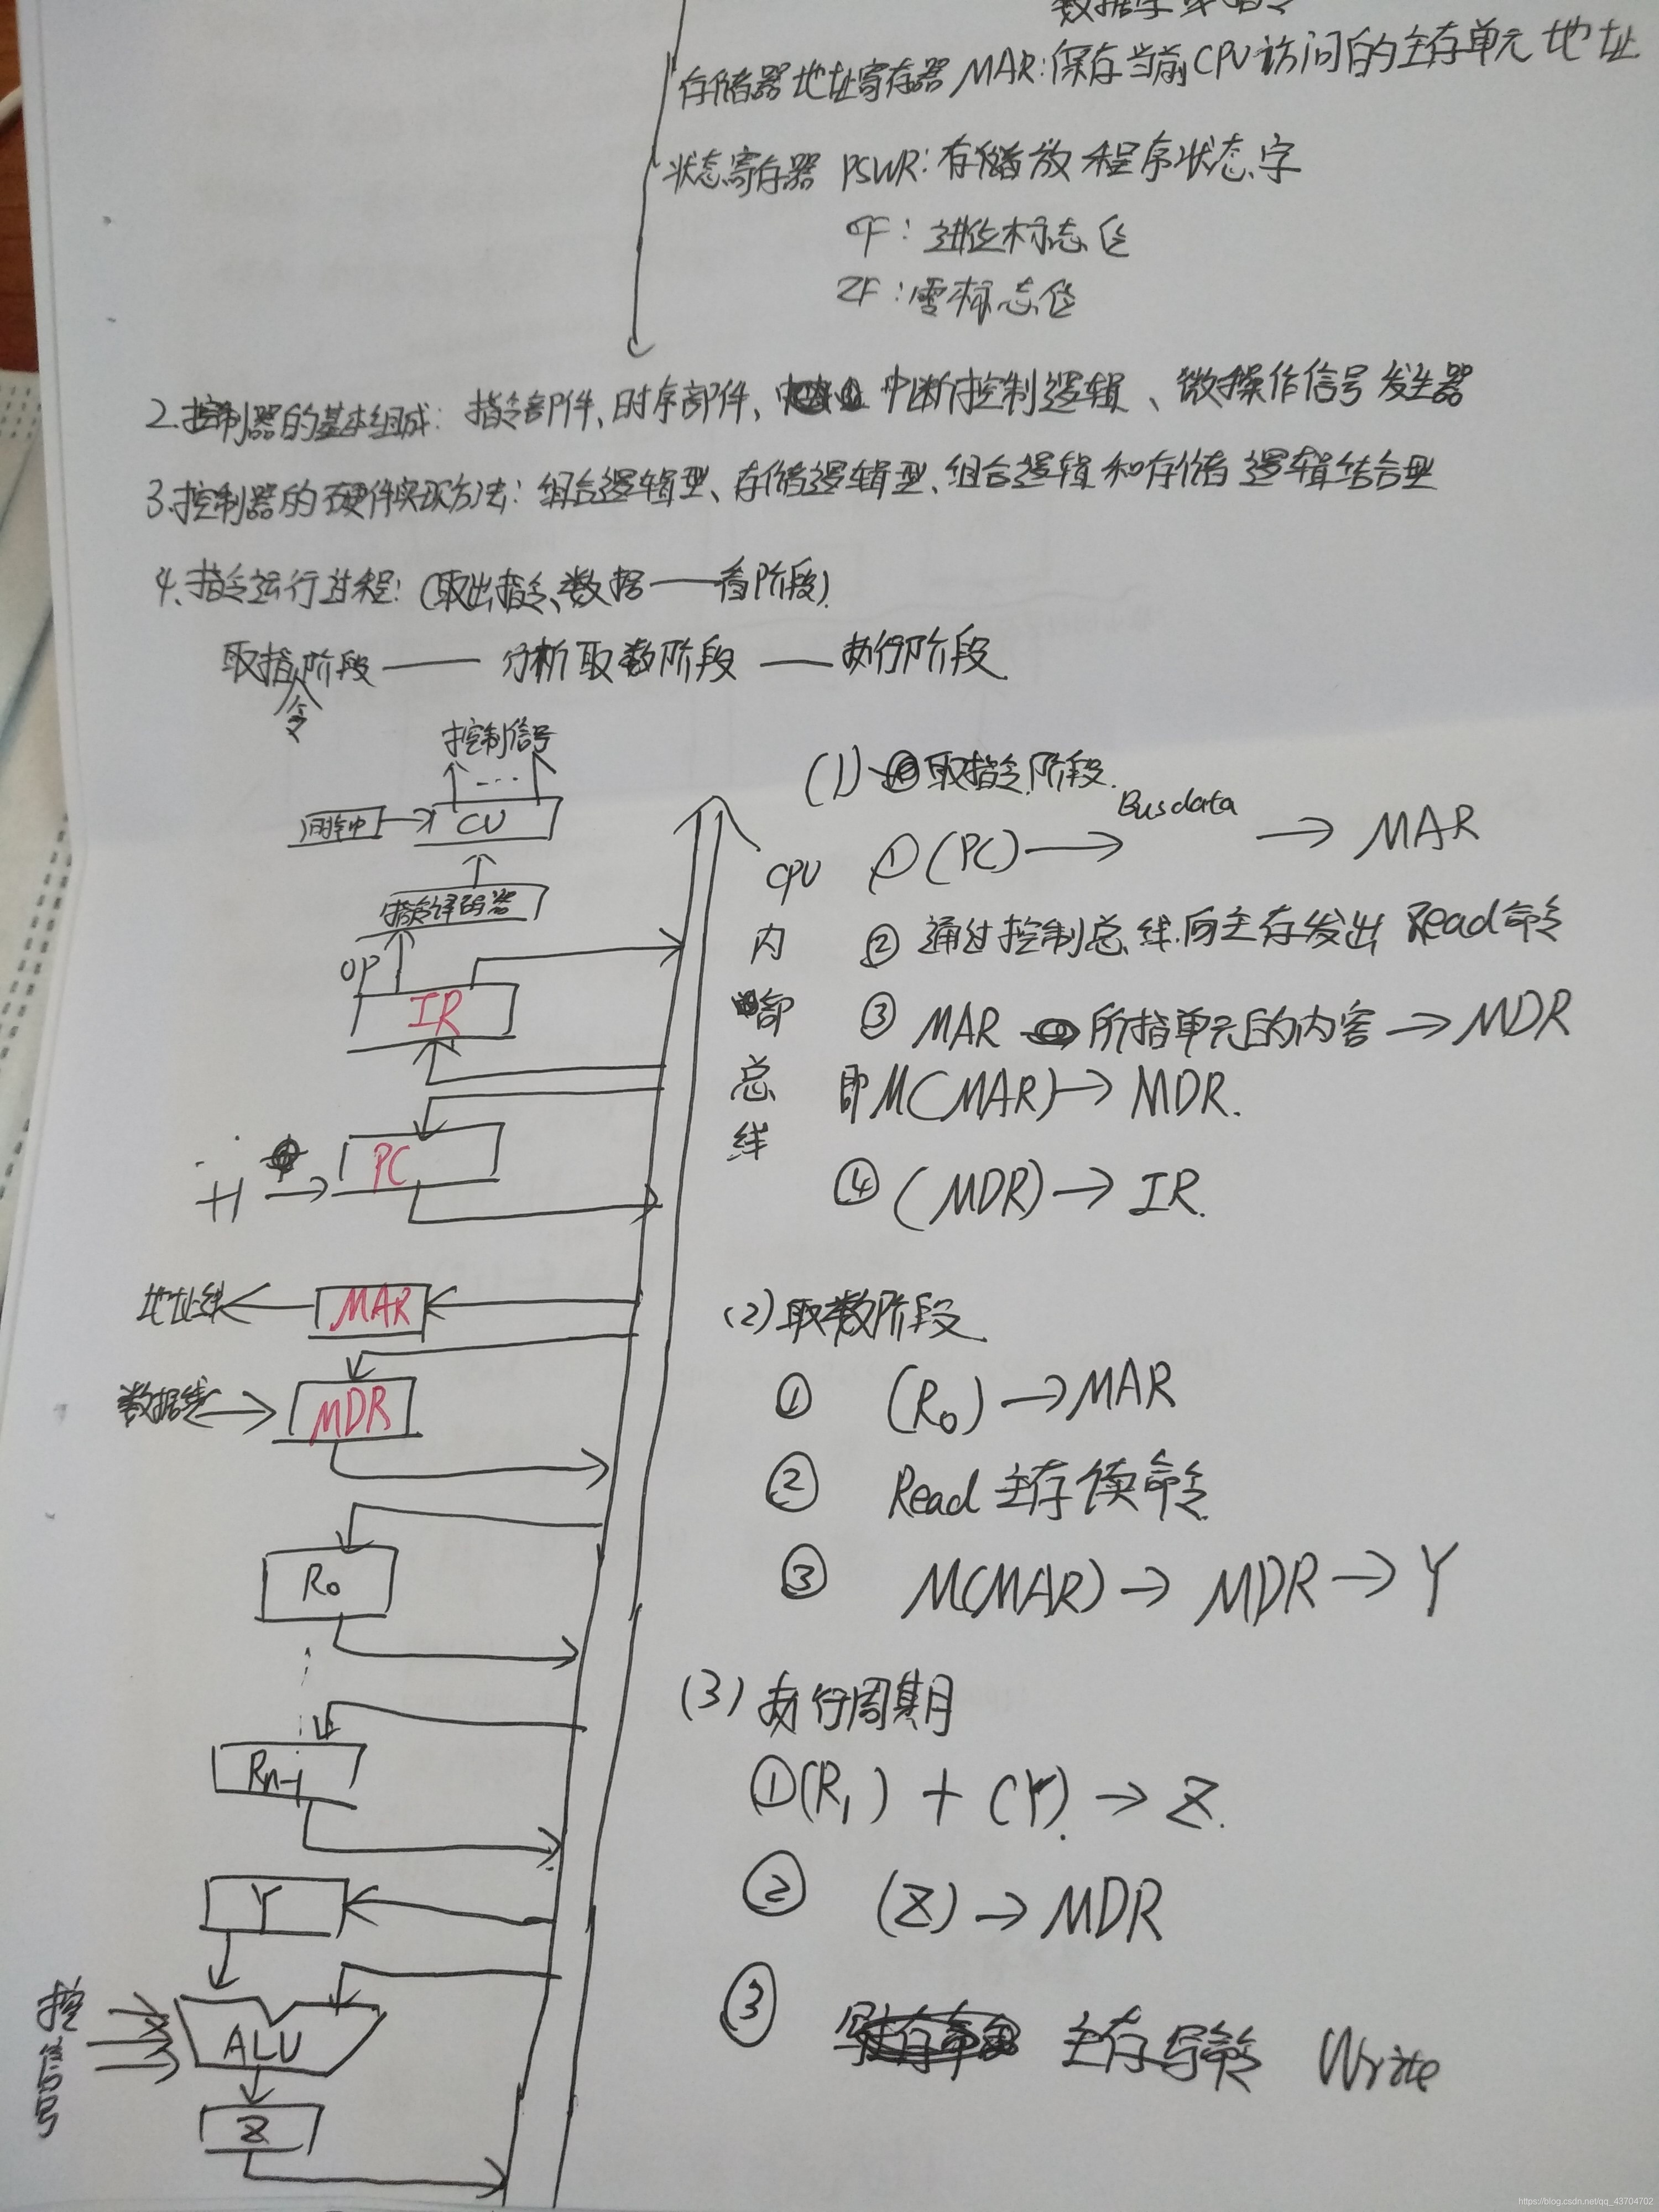 存储器地址寄存器 MAR:保存当前CPU访问的主存单元地址
状态寄存器 PSWR:存储放程序状态字
CF:进位标志位
ZF:零标志位
2.控制器的基本组成:指令部件、时序部件、中断控制逻辑、微操作信号发生器
3.控制器的硬件实现方法:组合逻辑型、存储逻辑型、组合逻辑和存储逻辑结合型
4.指令运行过程:(取出指令、数据——看阶段).
取指令阶段——分析取数阶段——执行阶段
控制信号
...
时钟
CU
指令译码器
OP
IR
PC
+1
地址线
MAR
数据线
MDR
R0
Rn-1
Y
控
信号
ALU
Z
CPU
内
部
总
线
(1)取指令阶段.
①(PC)→ Busdata → MAR
②通过控制总线向主存发出 Read命令
③ MAR 所指单元的内容→MDR
即M(MAR)→MDR.
④(MDR)→IR.
(2)取数阶段
① (R0)→MAR
② Read 主存读命令
③ M(MAR)→MDR→Y
(3)执行周期
①(R1)+(Y)→Z.
② (Z)→MDR
③ 主存写命令 Write
https://blog.csdn.net/qq_43704702